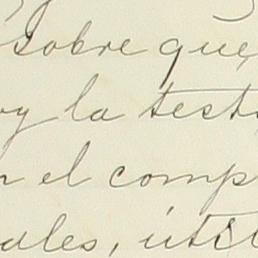 sobre que
y la test
n el comp
ales, útil